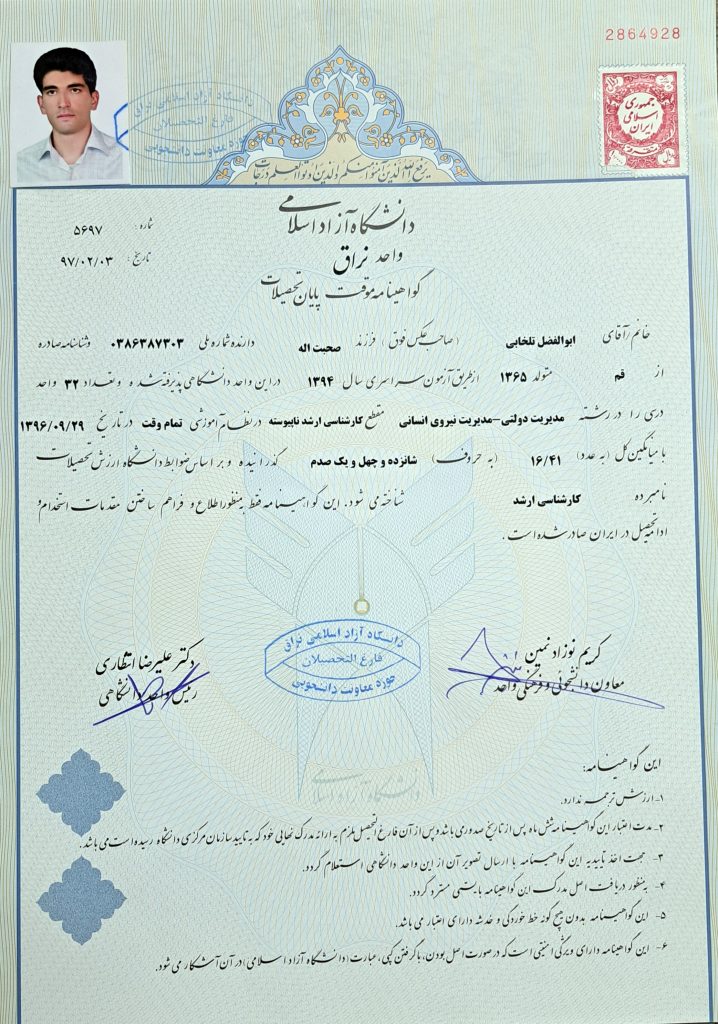 2864928
جمهوری
اسلامی
ایران
دانشگاه آزاد اسلامی نراق
فارغ التحصیلان
حوزه معاونت دانشجویی
یرفع الله الذین آمنوا منکم والذین اوتوا العلم درجات
دانشگاه آزاد اسلامی
واحد نراق
شماره: ۵۶۹۷
تاریخ: ۹۷/۰۲/۰۳
گواهینامه موقت پایان تحصیلات
خانم/آقای ابوالفضل تلخابی (صاحب عکس فوق) فرزند صحبت اله دارنده شماره ملی ۰۳۸۶۳۸۷۳۰۳ و شناسنامه صادره
از قم متولد ۱۳۶۵ از طریق آزمون سراسری سال ۱۳۹۴ در این واحد دانشگاهی پذیرفته شده و تعداد ۳۲ واحد
درسی را در رشته مدیریت دولتی-مدیریت نیروی انسانی مقطع کارشناسی ارشد ناپیوسته در نظام آموزشی تمام وقت در تاریخ ۱۳۹۶/۰۹/۲۹
با میانگین کل (به عدد) ۱۶/۴۱ (به حروف) شانزده و چهل و یک صدم گذرانیده و بر اساس ضوابط دانشگاه ارزش تحصیلات
نامبرده کارشناسی ارشد شناخته می شود. این گواهینامه فقط بمنظور اطلاع و فراهم ساختن مقدمات استخدام و
ادامه تحصیل در ایران صادر شده است.
دانشگاه آزاد اسلامی نراق
فارغ التحصیلان
حوزه معاونت دانشجویی
کریم نوزاد نمین
معاون دانشجوئی و فرهنگی واحد
دکتر علیرضا انتظاری
رئیس واحد دانشگاهی
دانشگاه آزاد اسلامی
این گواهینامه:
۱- ارزش ترجمه ندارد.
۲- مدت اعتبار این گواهینامه شش ماه پس از تاریخ صدور می باشد و پس از آن فارغ التحصیل ملزم به ارائه مدرک نهایی خود که به تایید سازمان مرکزی دانشگاه رسیده است می باشد.
۳- جهت اخذ تاییدیه این گواهینامه با ارسال تصویر آن از این واحد دانشگاهی استعلام گردد.
۴- به منظور دریافت اصل مدرک این گواهینامه بایستی مسترد گردد.
۵- این گواهینامه بدون هیچ گونه خط خوردگی و خدشه دارای اعتبار می باشد.
۶- این گواهینامه دارای ویژگی امنیتی است که در صورت اصل بودن، با گرفتن کپی، عبارت (دانشگاه آزاد اسلامی) در آن آشکار می شود.